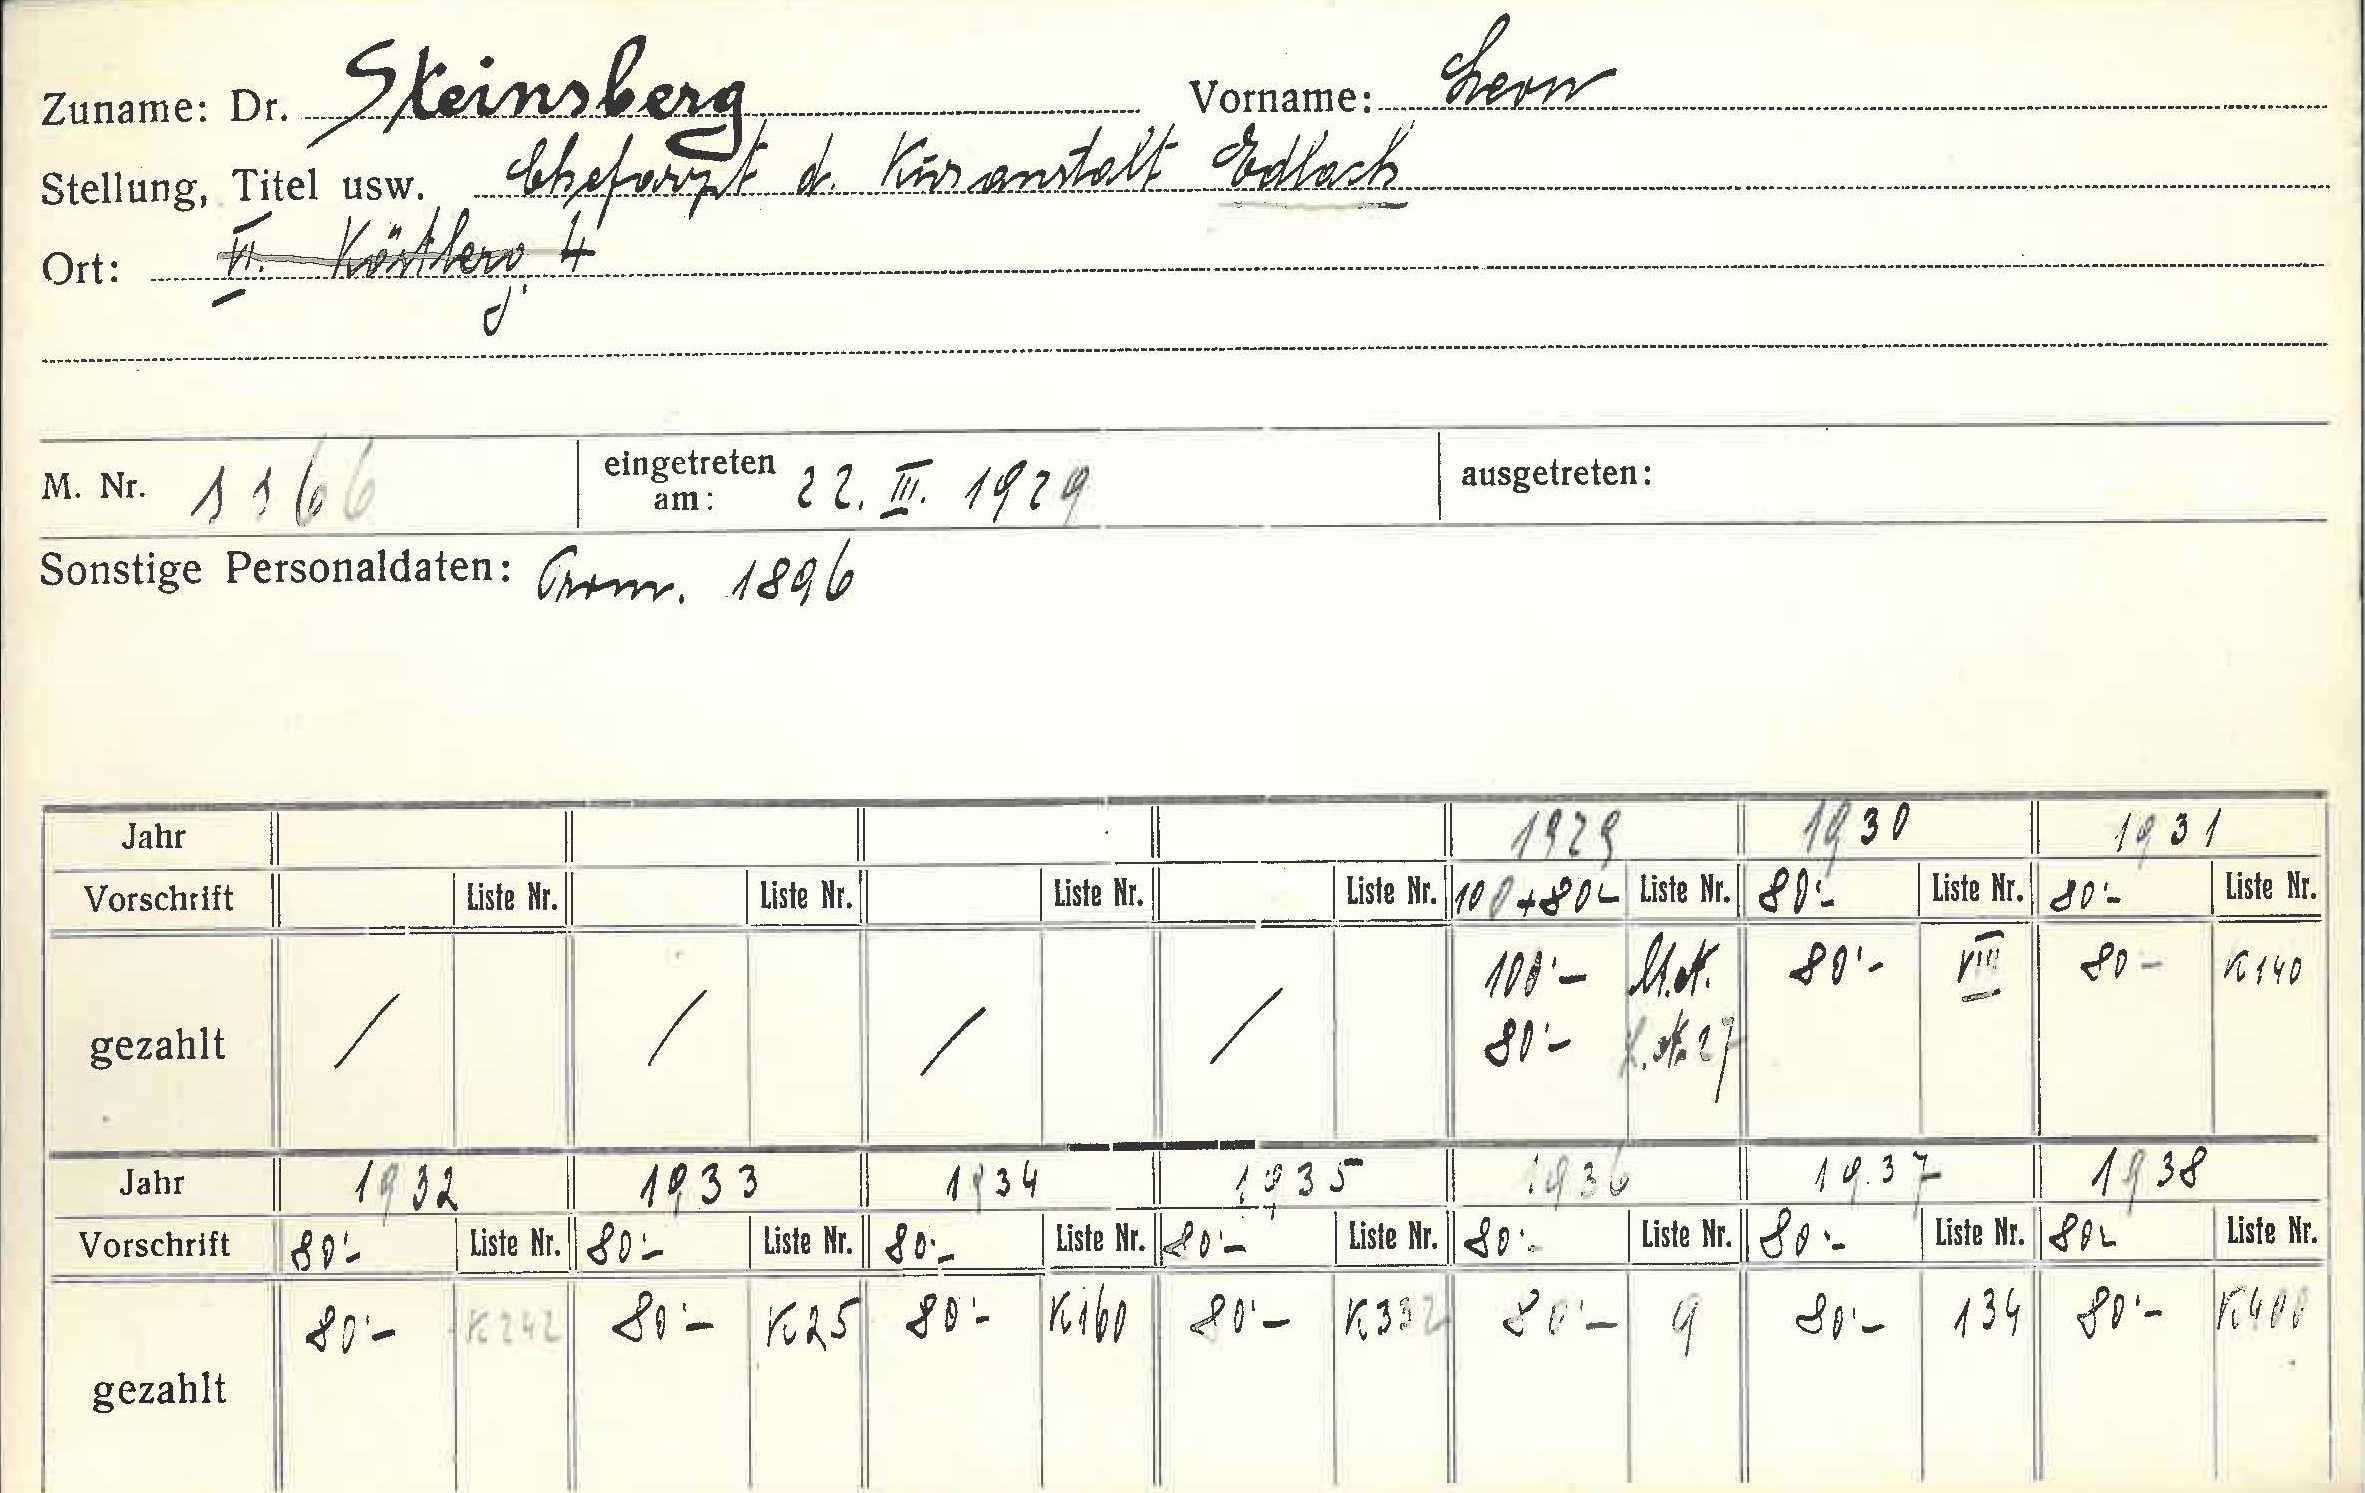 Zuname: Dr. Steinsberg Vorname: Leon
Stellung, Titel usw. Chefarzt d. Kuranstalt Edlach
Ort: VI. Köstlerg. 4
M. Nr. 1166 eingetreten am: 22. III. 1929 ausgetreten:
Sonstige Personaldaten: Prom. 1896
Jahr 1929 1930 1931
Vorschrift Liste Nr. Liste Nr. Liste Nr. Liste Nr. 100+80- Liste Nr. 80'- Liste Nr. 80'- Liste Nr.
gezahlt / / / / 100'- 80'- VIII 80- K140
80'- 27
Jahr 1932 1933 1934 1935 1936 1937 1938
Vorschrift 80'- Liste Nr. 80'- Liste Nr. 80'- Liste Nr. 80'- Liste Nr. 80'- Liste Nr. 80'- Liste Nr. 80- Liste Nr.
gezahlt 80'- K242 80'- K25 80'- K160 80'- K332 80'- 9 80'- 134 80'- K400